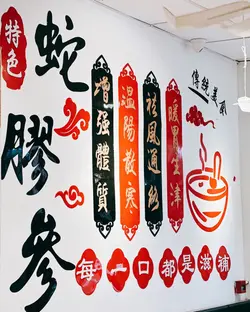 特色
蛇膠參
增强體質
温陽散寒
祛風通絡
暖胃生津
傳統美味
每一口都是滋補